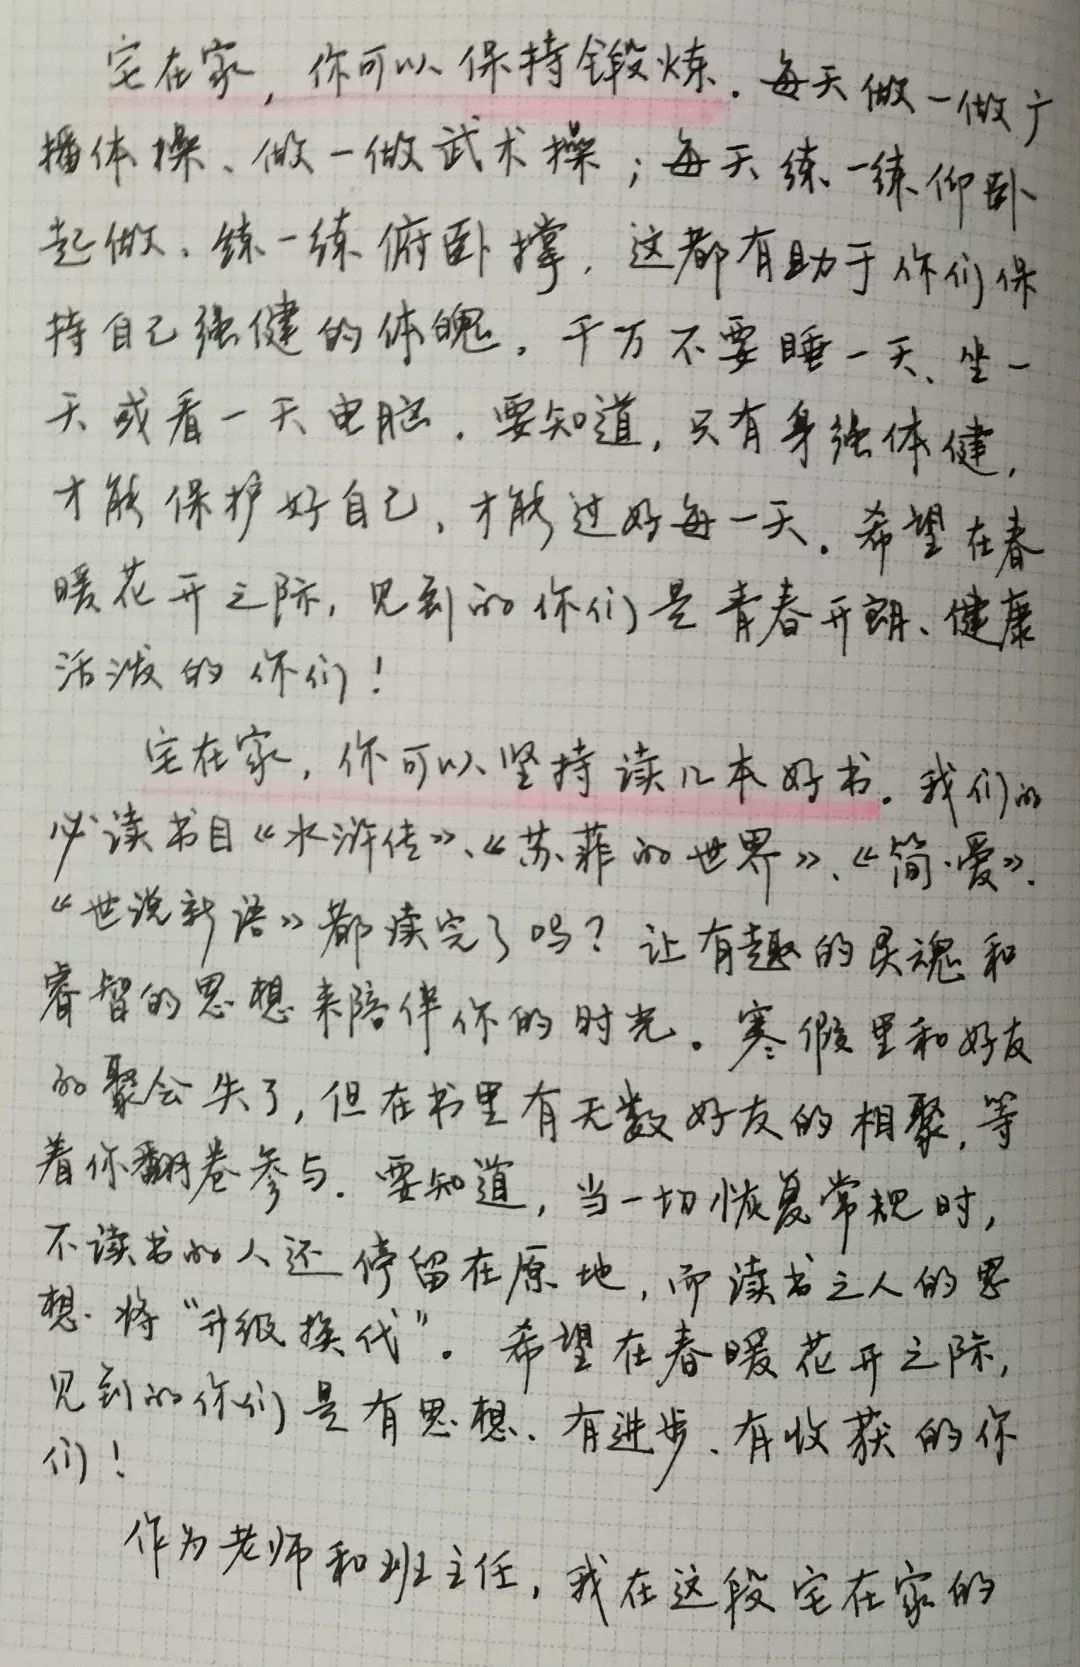 宅在家，你可以保持锻炼。每天做一做广
播体操、做一做武术操；每天练一练仰卧
起做、练一练俯卧撑，这都有助于你们保
持自己强健的体魄。千万不要睡一天、坐一
天或看一天电脑。要知道，只有身强体健，
才能保护好自己，才能过好每一天。希望在春
暖花开之际，见到的你们是青春开朗、健康
活泼的你们！
宅在家，你可以坚持读几本好书。我们的
必读书目《水浒传》、《苏菲的世界》、《简·爱》、
《世说新语》都读完了吗？让有趣的灵魂和
睿智的思想来陪伴你的时光。寒假里和好友
的聚会失了，但在书里有无数好友的相聚，等
着你翻卷参与。要知道，当一切恢复常规时，
不读书的人还停留在原地，而读书之人的思
想将“升级换代”。希望在春暖花开之际，
见到的你们是有思想、有进步、有收获的你
们！
作为老师和班主任，我在这段宅在家的